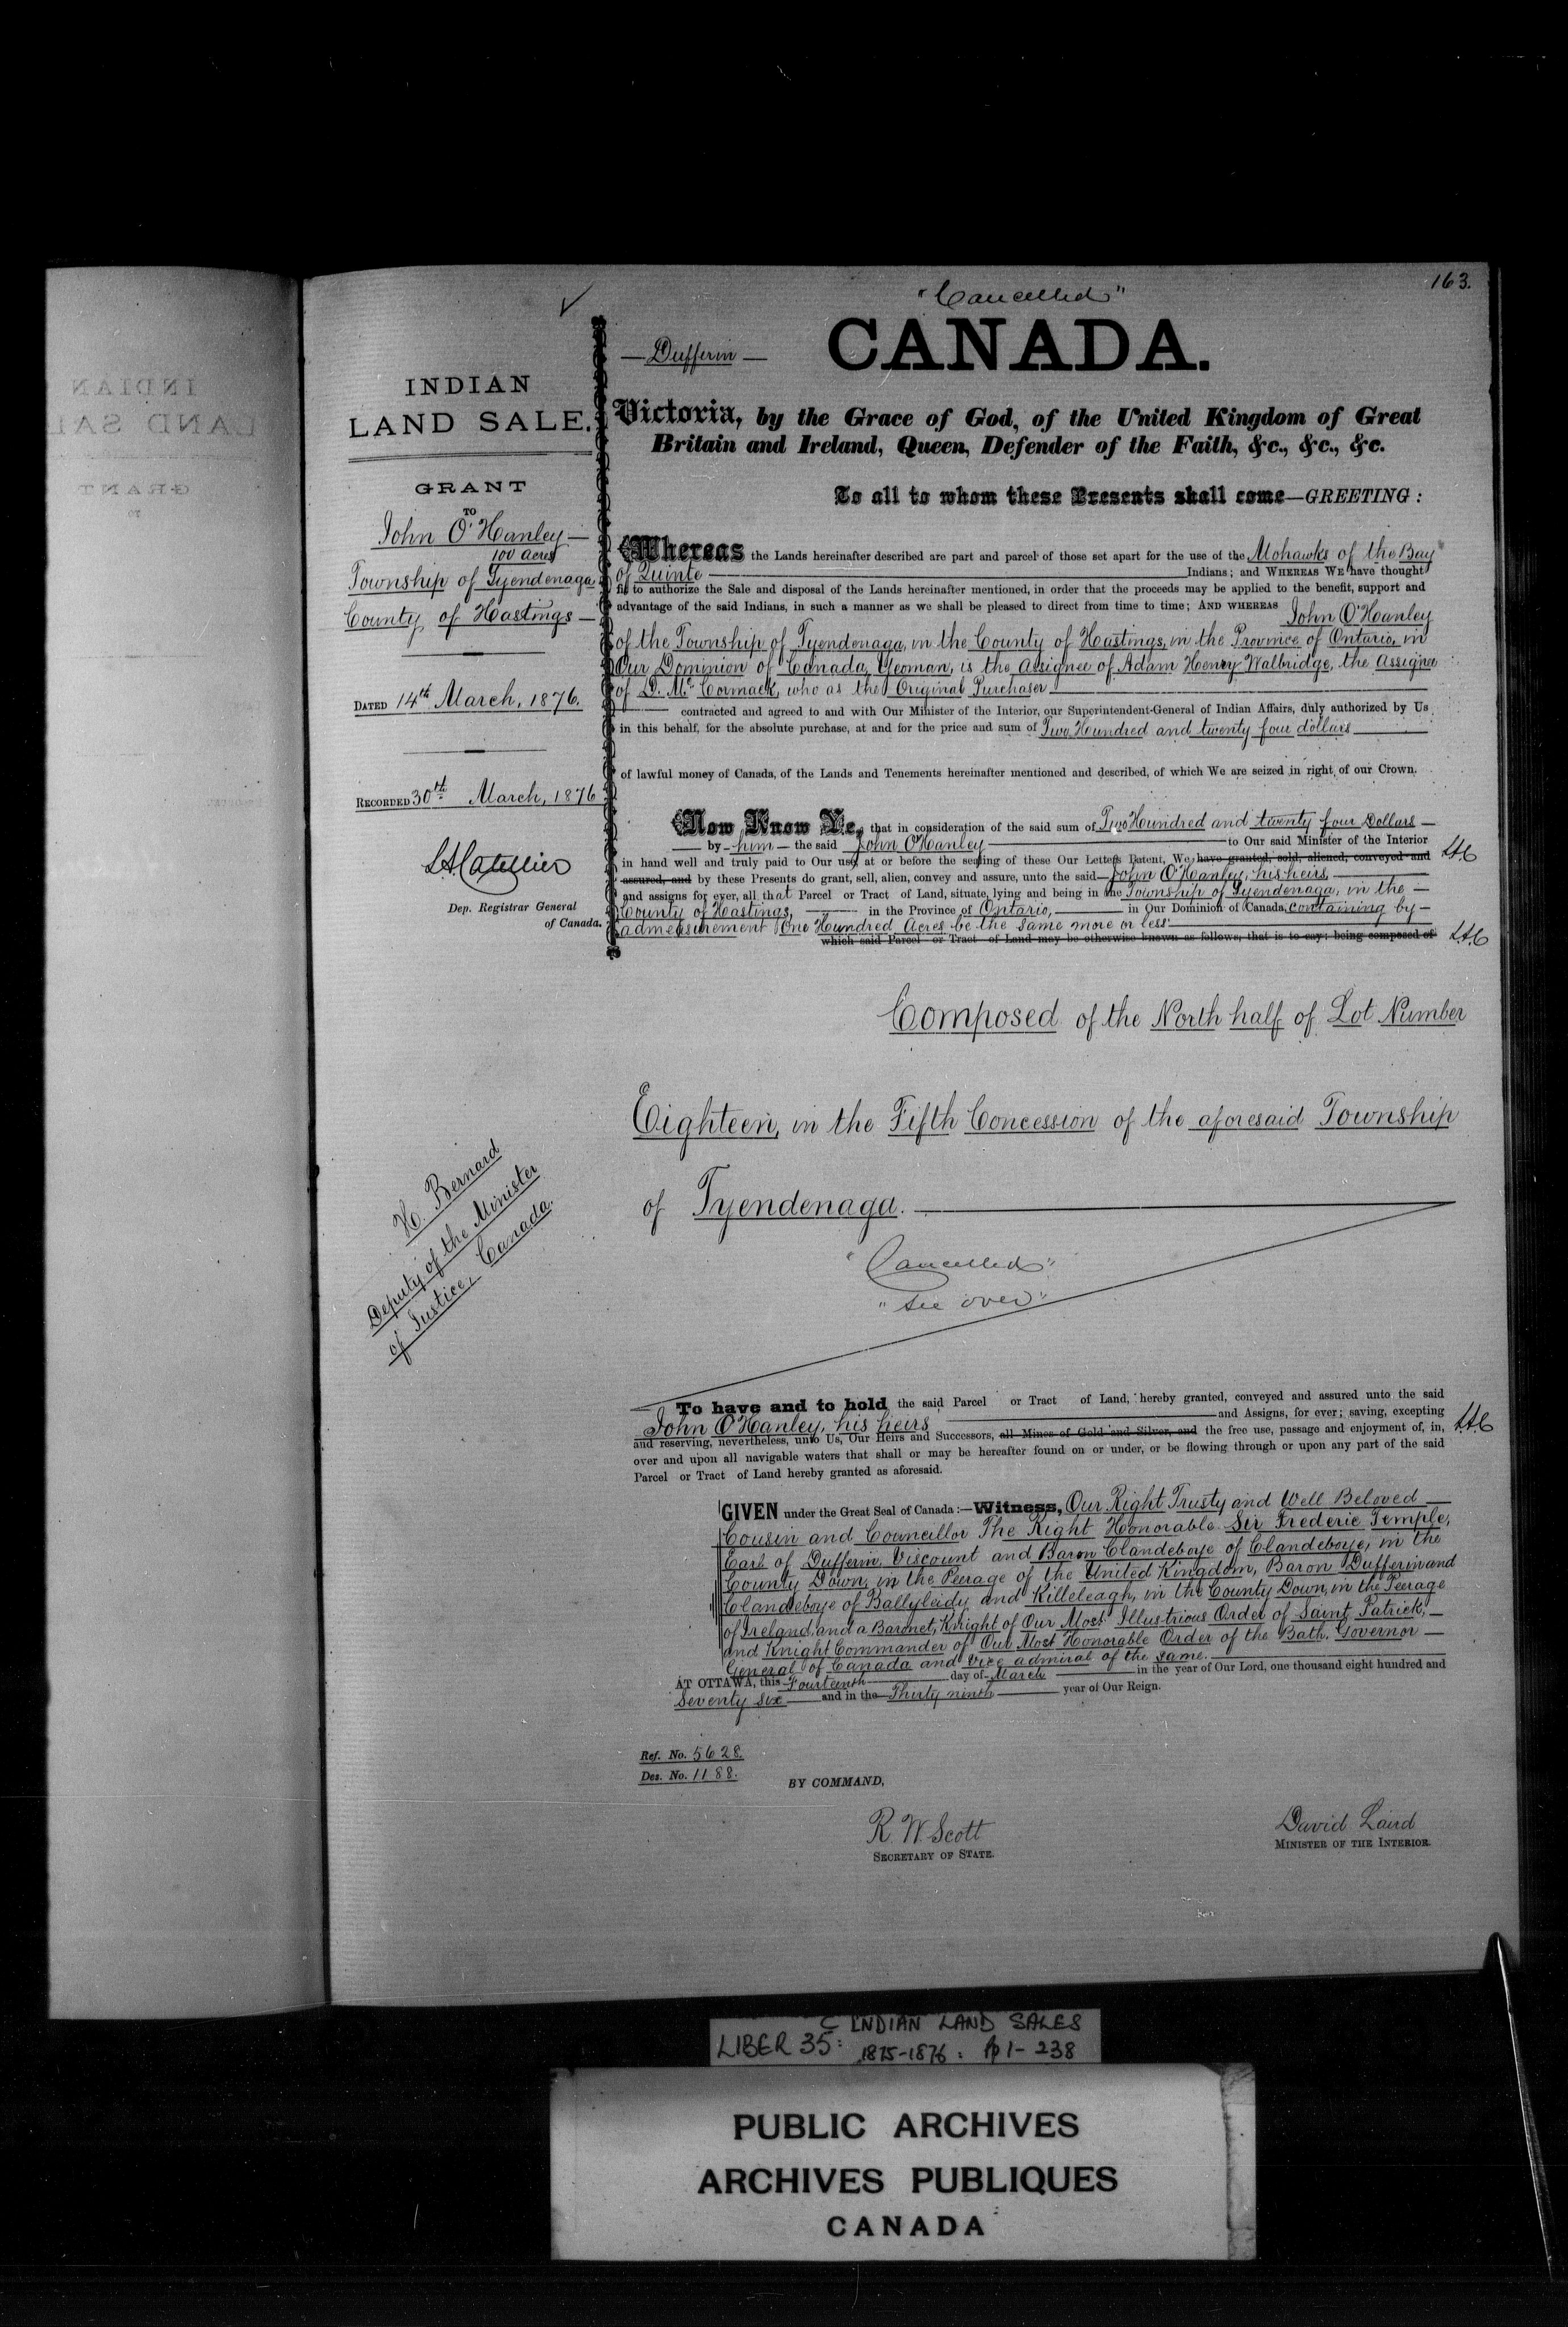 163.
"Cancelled"
— Dufferin —
CANADA.
INDIAN
LAND SALE.
GRANT
TO
John O'Hanley —
100 acres
Township of Tyendenaga
County of Hastings —
DATED 14th March, 1876.
RECORDED 30th March, 1876
Dep. Registrar General
of Canada.
H. Bernard
Deputy of the Minister
of Justice, Canada.
Victoria, by the Grace of God, of the United Kingdom of Great
Britain and Ireland, Queen, Defender of the Faith, &c., &c., &c.
To all to whom these Presents shall come—GREETING:
Whereas the Lands hereinafter described are part and parcel of those set apart for the use of the Mohawks of the Bay
of Quinte Indians; and WHEREAS WE have thought
fit to authorize the Sale and disposal of the Lands hereinafter mentioned, in order that the proceeds may be applied to the benefit, support and
advantage of the said Indians, in such a manner as we shall be pleased to direct from time to time; AND WHEREAS John O'Hanley
of the Township of Tyendenaga, in the County of Hastings, in the Province of Ontario, in
Our Dominion of Canada, Yeoman, is the Assignee of Adam Henry Walbridge, the Assignee
of D. McCormack, who as the Original Purchaser
contracted and agreed to and with Our Minister of the Interior, our Superintendent-General of Indian Affairs, duly authorized by Us
in this behalf, for the absolute purchase, at and for the price and sum of Two Hundred and twenty four dollars
of lawful money of Canada, of the Lands and Tenements hereinafter mentioned and described, of which We are seized in right of our Crown.
Now Know Ye, that in consideration of the said sum of Two Hundred and twenty four Dollars —
by — him — the said John O'Hanley to Our said Minister of the Interior
in hand well and truly paid to Our use, at or before the sealing of these Our Letters Patent, We have granted, sold, aliened, conveyed and
assured, and by these Presents do grant, sell, alien, convey and assure, unto the said — John O'Hanley, his heirs
and assigns for ever, all that Parcel or Tract of Land, situate, lying and being in the Township of Tyendenaga, in the —
County of Hastings, in the Province of Ontario, in Our Dominion of Canada, containing by —
admeasurement One Hundred Acres be the same more or less
which said Parcel or Tract of Land may be otherwise known as follows, that is to say: being composed of
Composed of the North half of Lot Number
Eighteen, in the Fifth Concession of the aforesaid Township
of Tyendenaga.
"Cancelled"
"See over"
To have and to hold the said Parcel or Tract of Land, hereby granted, conveyed and assured unto the said
John O'Hanley, his heirs and Assigns, for ever; saving, excepting
and reserving, nevertheless, unto Us, Our Heirs and Successors, all Mines of Gold and Silver, and the free use, passage and enjoyment of, in,
over and upon all navigable waters that shall or may be hereafter found on or under, or be flowing through or upon any part of the said
Parcel or Tract of Land hereby granted as aforesaid.
GIVEN under the Great Seal of Canada:—Witness, Our Right Trusty and Well Beloved
Cousin and Councillor The Right Honorable Sir Frederic Temple,
Earl of Dufferin, Viscount and Baron Clandeboye of Clandeboye, in the
County Down, in the Peerage of the United Kingdom, Baron Dufferin and
Clandeboye of Ballyleidy and Killeleagh, in the County Down, in the Peerage
of Ireland, and a Baronet, Knight of Our Most Illustrious Order of Saint Patrick, —
and Knight Commander of Our Most Honorable Order of the Bath. Governor —
General of Canada and Vice admiral of the same.
AT OTTAWA, this Fourteenth day of March in the year of Our Lord, one thousand eight hundred and
Seventy six and in the Thirty ninth year of Our Reign.
Ref. No. 5628.
Des. No. 1188.
BY COMMAND,
R. W. Scott
SECRETARY OF STATE.
David Laird
MINISTER OF THE INTERIOR.
C INDIAN LAND SALES
LIBER 35: 1875-1876: pp 1-238
PUBLIC ARCHIVES
ARCHIVES PUBLIQUES
CANADA